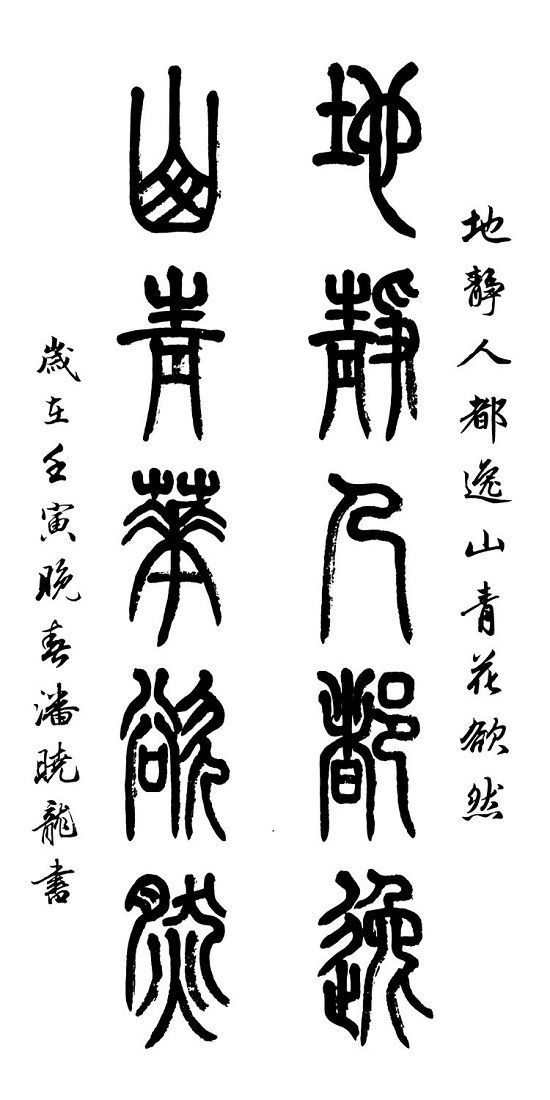 地静人都逸山青花欲然
地静人都逸
山青華欲然
歲在壬寅晚春潘曉龍書